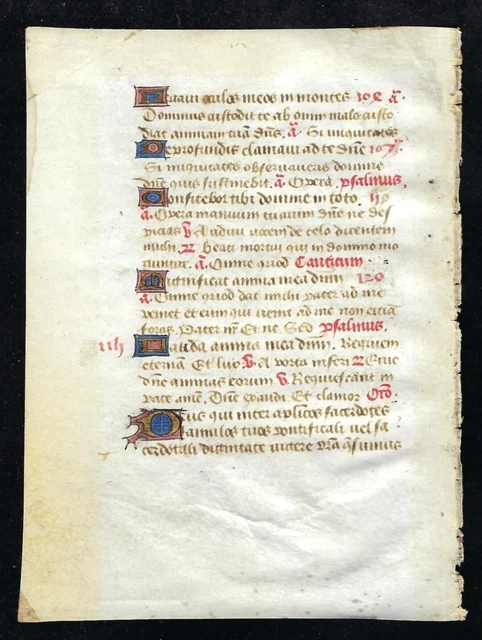 Leuaui oculos meos in montes 108 a.
Dominus custodit te ab omni malo custo
diat animam tuã dñs. a. Si iniquitates
De profundis clamaui ad te dñe 107
Si iniquitates obseruaueris domine
dñe quis sustinebit. a. Opera. psalmus.
Confitebor tibi domine in toto.
a. Opera manuum tuarum dñe ne des
picias v. Audiui uocem de celo dicentem
michi. R Beati mortui qui in domino mo
riuntur. a. Omne quod Canticum
Magnificat anima mea dñm 120
a. Omne quod dat michi pater ad me
veniet et eum qui uenit ad me non eiciã
foras. Pater nr̃ Et ne. Sed psalmus.
Lauda anima mea dñm. Requiem
eternã Et lux v. A porta inferi R Erue
dñe animas eorum v. Requiescant in
pace amẽ. Dñe exaudi Et clamor Oro.
Deus qui inter aplicos sacerdotes
famulos tuos pontificali uel sa
cerdotali dignitate uigere